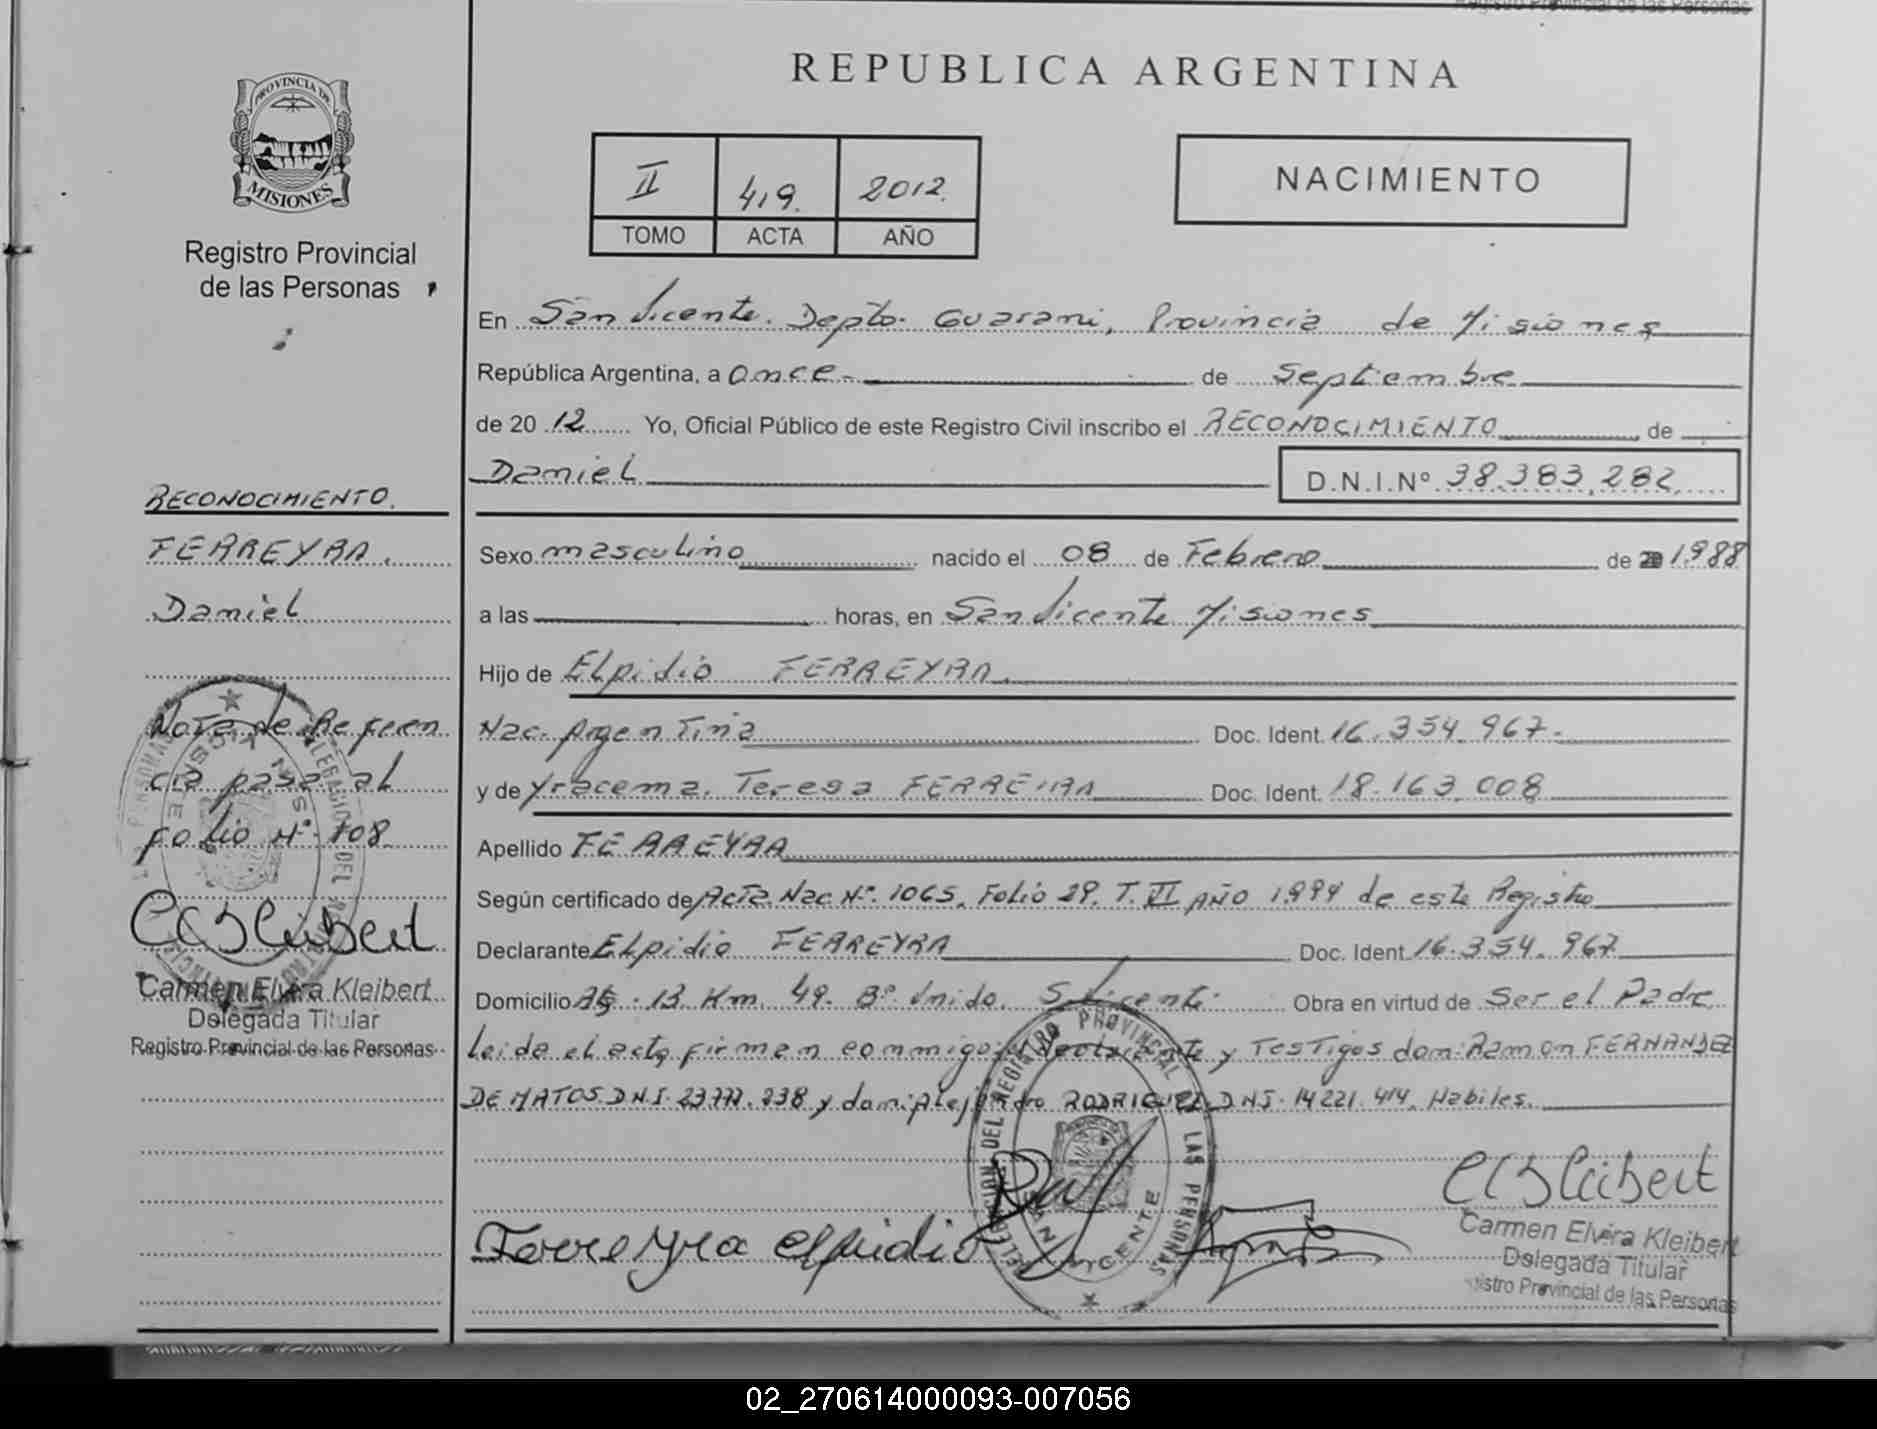 Registro Provincial de las Personas
PROVINCIA DE
MISIONES
Registro Provincial
de las Personas
RECONOCIMIENTO.
FERREYRA.
Daniel
Nota de Referen
cia pasa al
folio Nº 108
Carmen Elvira Kleibert
Delegada Titular
Registro Provincial de las Personas
REPUBLICA ARGENTINA
II 419. 2012.
TOMO ACTA AÑO
NACIMIENTO
En San Vicente. Depto. Guarani, Provincia de Misiones
República Argentina, a once de Septiembre
de 2012 Yo, Oficial Público de este Registro Civil inscribo el RECONOCIMIENTO de
Daniel D.N.I.Nº 38.383.282
Sexo masculino nacido el 08 de Febrero de 1988
a las horas, en San Vicente Misiones
Hijo de Elpidio FERREYRA.
Nac. Argentina Doc. Ident. 16.354.967.
y de Yracema. Teresa FERREIRA Doc. Ident. 18.163.008
Apellido FERREYRA
Según certificado de Acta Nac Nº. 1065. Folio 29. T. VI AÑO 1994 de este Registro
Declarante Elpidio FERREYRA Doc. Ident. 16.354.967
Domicilio 13 Km. 49. Bº Unido. S. Vicente. Obra en virtud de Ser el Padre
leida el acta firman conmigo y Testigos don: Ramon FERNANDEZ
DE MATOS DNI. 238 y don: Alejandro RODRIGUEZ DNI. 14221.414. Habiles.
DELEGACION DEL REGISTRO PROVINCIAL DE LAS PERSONAS
SAN VICENTE
Ferreyra elpidio
Carmen Elvira Kleibert
Delegada Titular
Registro Provincial de las Personas
02_270614000093-007056